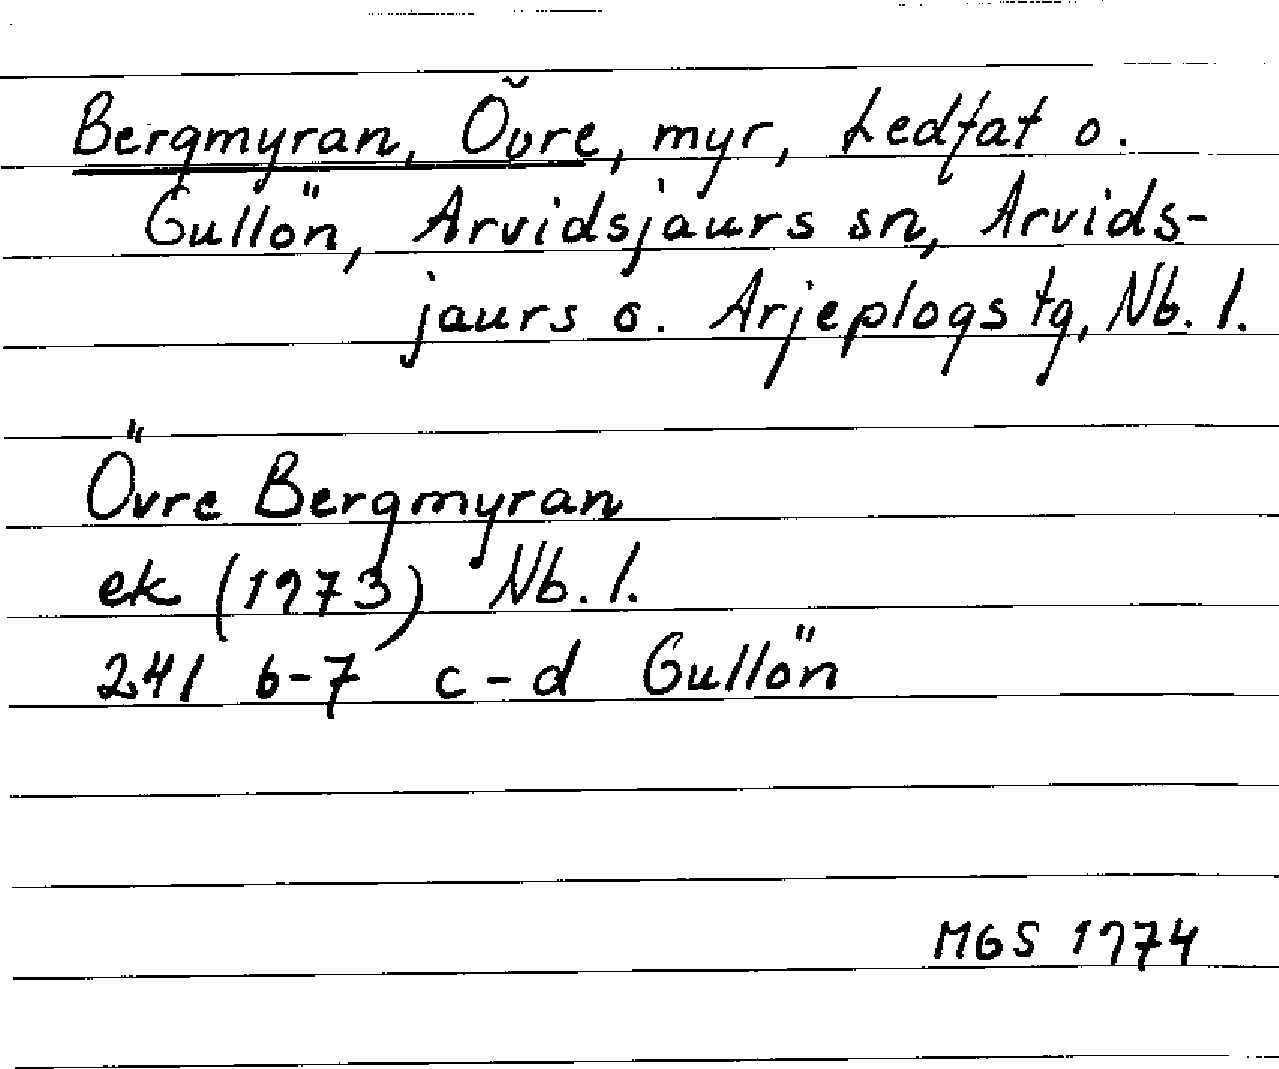 Bergmyran, Övre, myr, Ledfat o.
Gullön, Arvidsjaurs sn, Arvids-
jaurs o. Arjeplogs tg, Nb. l.
Övre Bergmyran
ek (1973) Nb. l.
241 6-7 c-d Gullön
MGS 1974